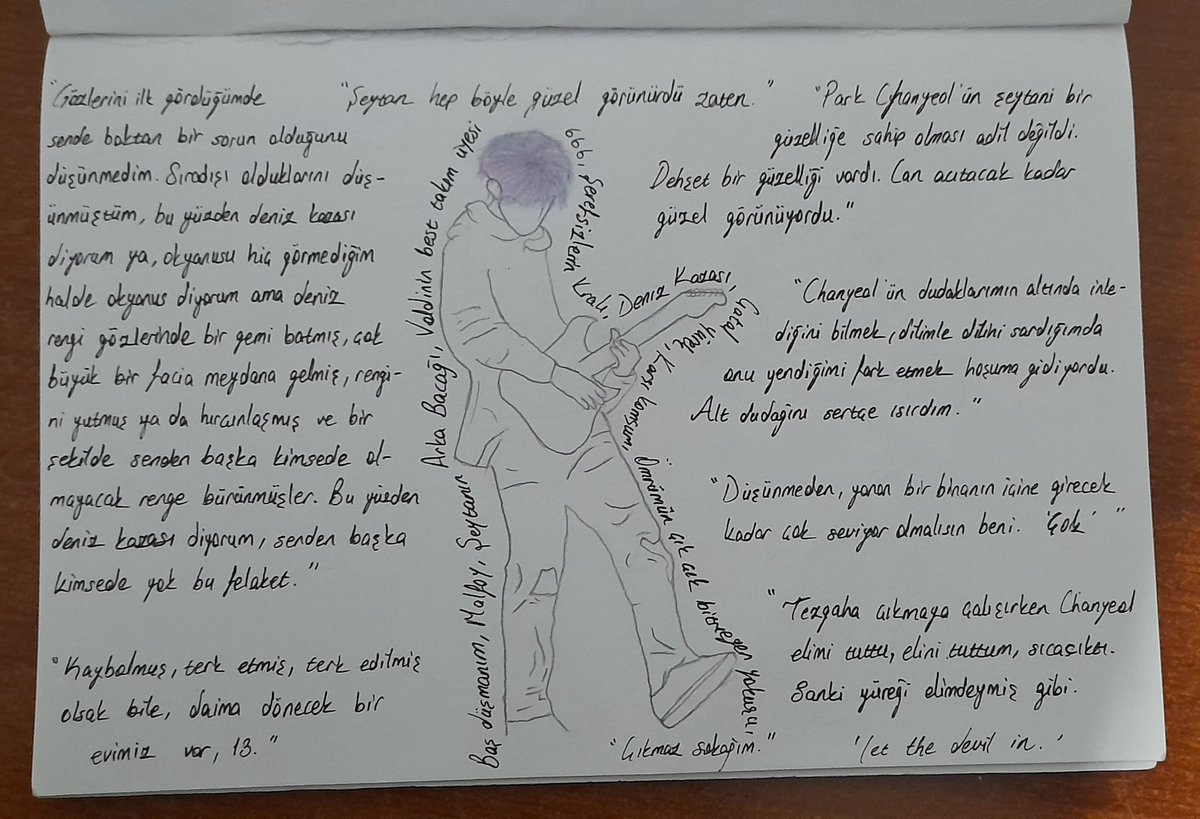 "Gözlerini ilk gördüğümde
sende baktan bir sorun olduğunu
düşünmedim. Sıradışı olduklarını düş-
ünmüştüm, bu yüzden deniz kazası
diyorum ya, okyanusu hiç görmediğim
halde okyanus diyorum ama deniz
rengi gözlerinde bir gemi batmış, çok
büyük bir facia meydana gelmiş, rengi-
ni yutmuş ya da hırçınlaşmış ve bir
şekilde senden başka kimsede ol-
mayacak renge bürünmüşler. Bu yüzden
deniz kazası diyorum, senden başka
kimsede yok bu felaket."
"Kaybolmuş, terk etmiş, terk edilmiş
olsak bile, daima dönecek bir
evimiz var, 13."
"Şeytan hep böyle güzel görünürdü zaten."
Baş düşmanım, Malfoy, Şeytanın
Arka Bacağı, Valdinin best takım üyesi
666'ı, Şerefsizlerin Kralı, Deniz Kazası,
Çatal Yürek, Karşı komşum, Ömrümün çık çık bitmeyen yokuşu,
"Çıkmaz sokağım."
"Park Chanyeol'ün şeytani bir
güzelliğe sahip olması adil değildi.
Dehşet bir güzelliği vardı. Can acıtacak kadar
güzel görünüyordu."
"Chanyeol'ün dudaklarımın altında inle-
diğini bilmek, dilimle dilini sardığımda
onu yendiğimi fark etmek hoşuma gidiyordu.
Alt dudağını sertçe ısırdım."
"Düşünmeden, yanan bir binanın içine girecek
kadar çok seviyor olmalısın beni. 'Çok' "
"Tezgaha çıkmaya çalışırken Chanyeol
elimi tuttu, elini tuttum, sıcacıktı.
Sanki yüreği elimdeymiş gibi.
'let the devil in.'